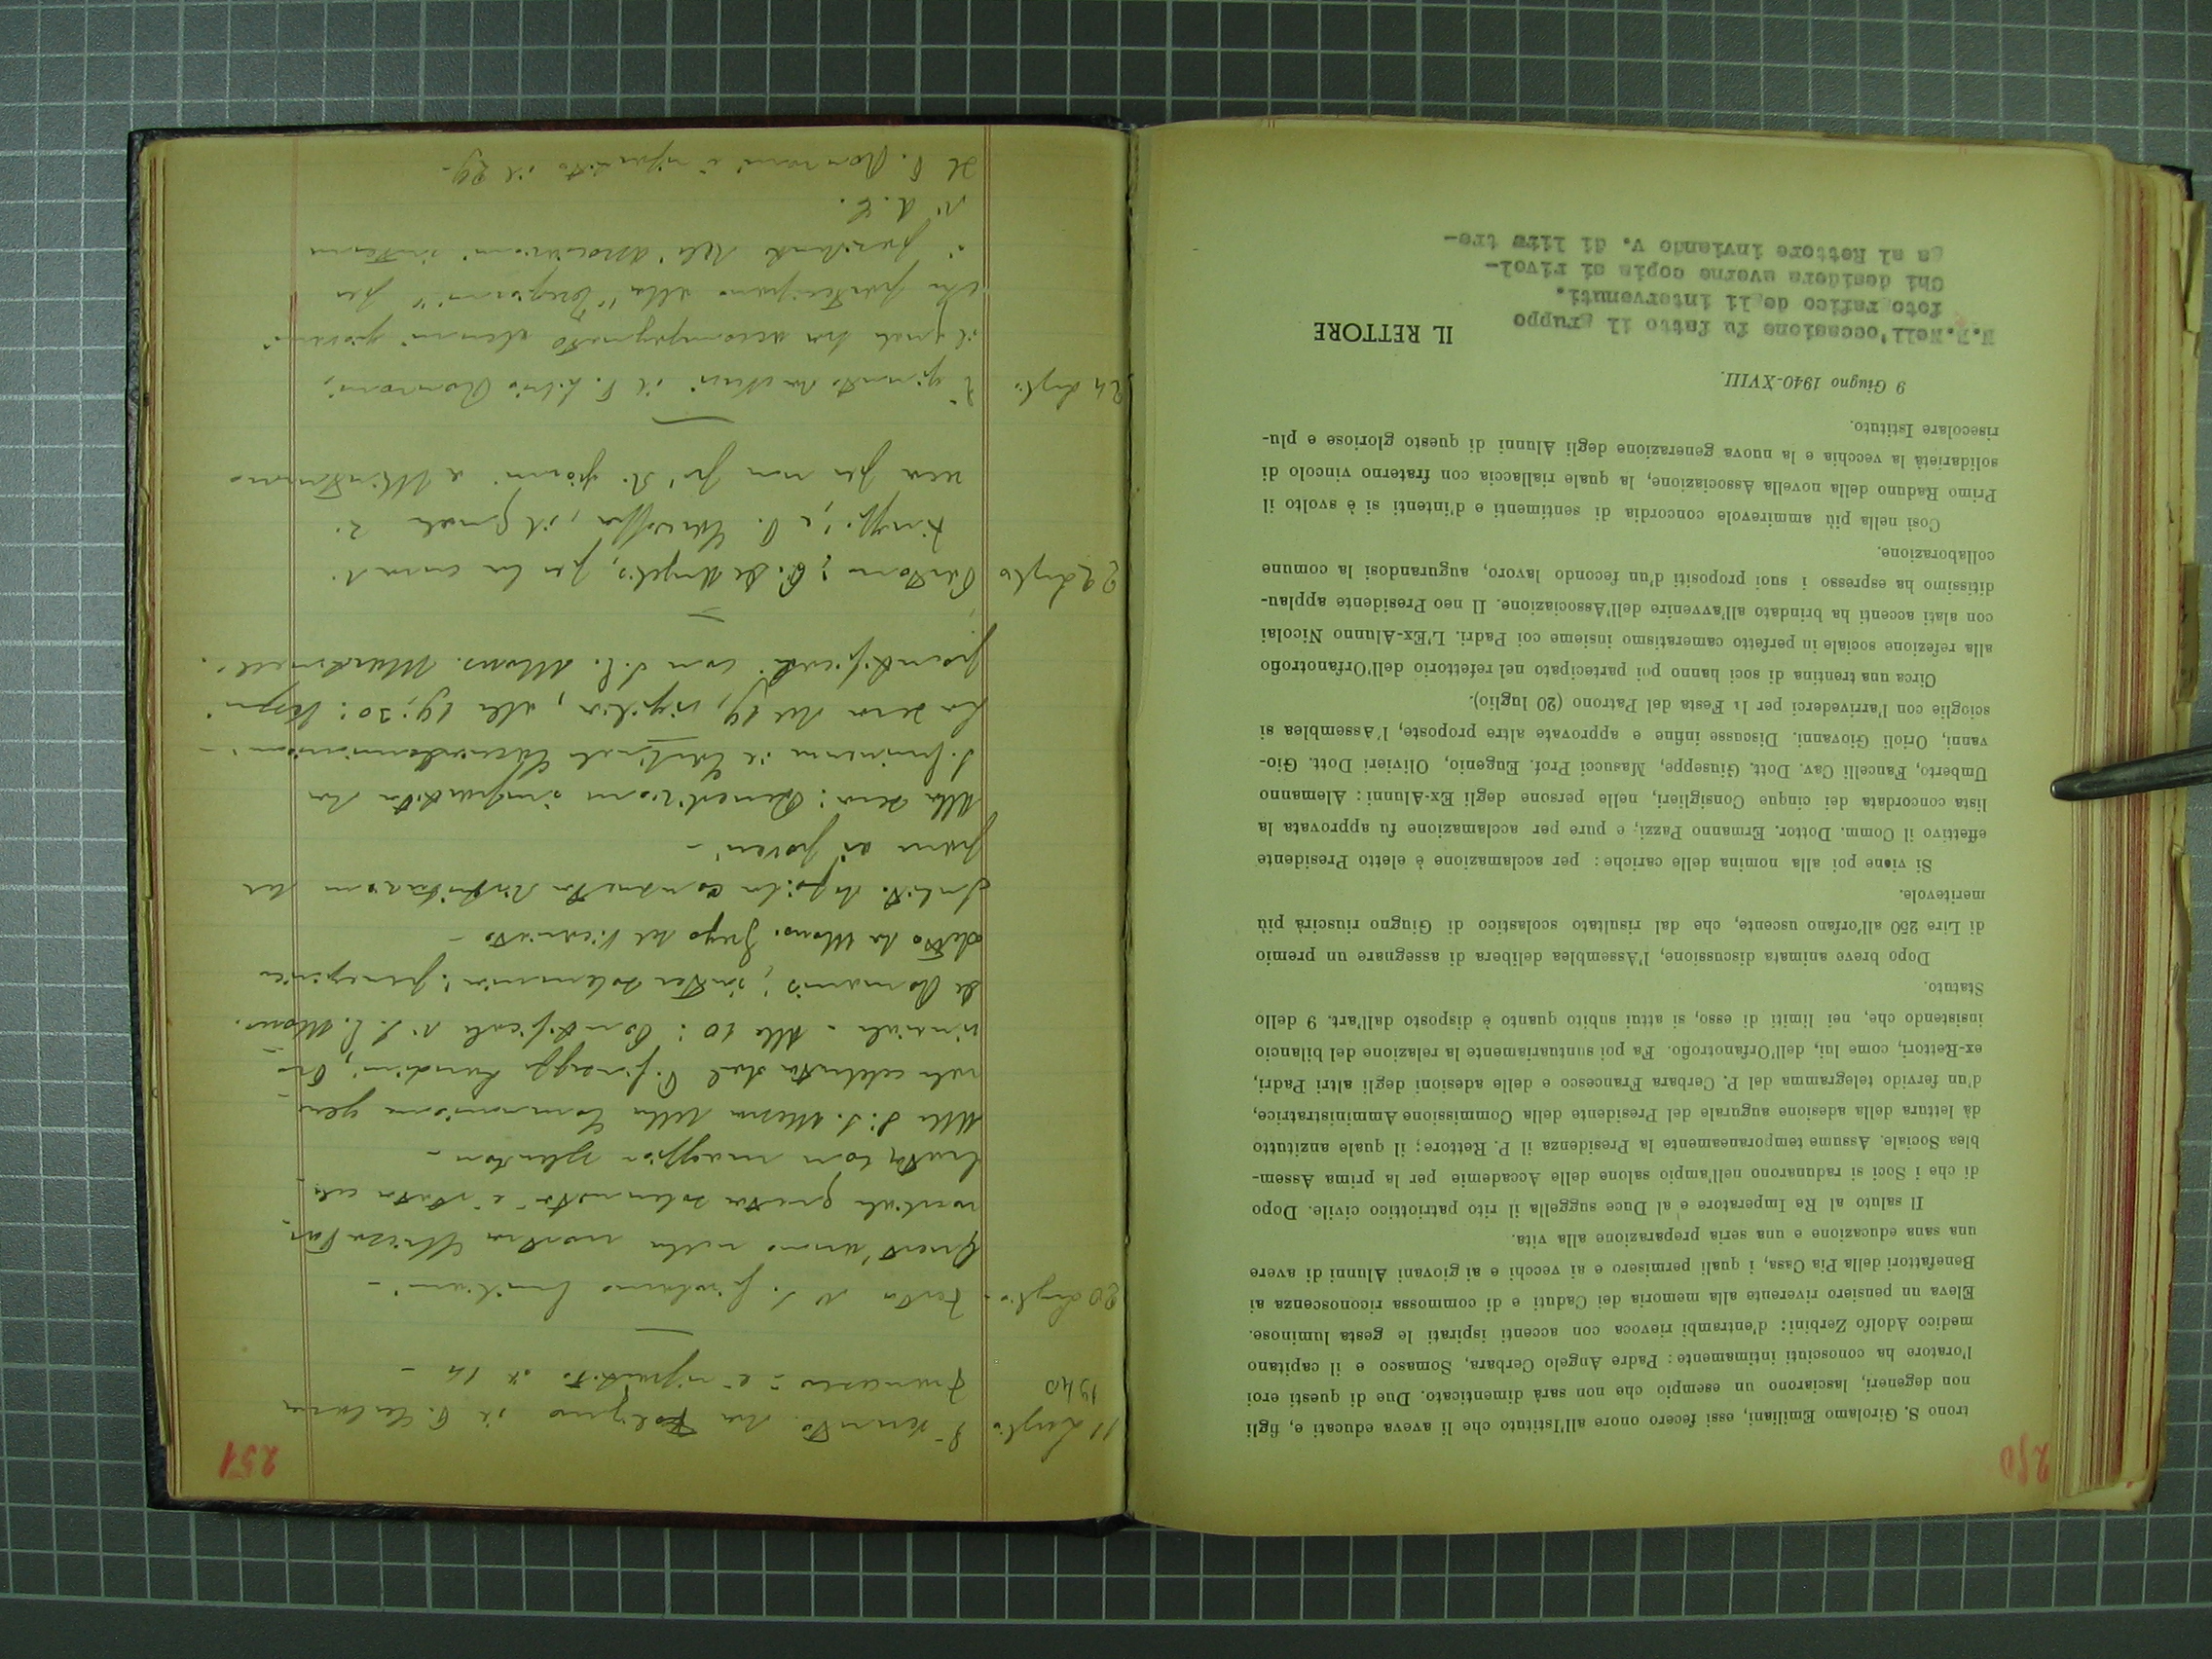 250
trono S. Girolamo Emiliani, essi fecero onore all'Istituto che li aveva educati e, figli
non degeneri, lasciarono un esempio che non sarà dimenticato. Due di questi eroi
l'oratore ha conosciuti intimamente: Padre Angelo Cerbara, Somasco e il capitano
medico Adolfo Zerbini: d'entrambi rievoca con accenti ispirati le gesta luminose.
Eleva un pensiero riverente alla memoria dei Caduti e di commossa riconoscenza ai
Benefattori della Pia Casa, i quali permisero e ai vecchi e ai giovani Alunni di avere
una sana educazione e una seria preparazione alla vita.
Il saluto al Re Imperatore e al Duce suggella il rito patriottico civile. Dopo
di che i Soci si radunarono nell'ampio salone delle Accademie per la prima Assem-
blea Sociale. Assume temporaneamente la Presidenza il P. Rettore; il quale anzitutto
dà lettura della adesione augurale del Presidente della Commissione Amministratrice,
d'un fervido telegramma del P. Cerbara Francesco e delle adesioni degli altri Padri,
ex-Rettori, come lui, dell'Orfanotrofio. Fa poi suntuariamente la relazione del bilancio
insistendo che, nei limiti di esso, si attui subito quanto è disposto dall'art. 9 dello
Statuto.
Dopo breve animata discussione, l'Assemblea delibera di assegnare un premio
di Lire 250 all'orfano uscente, che dal risultato scolastico di Giugno riuscirà più
meritevole.
Si viene poi alla nomina delle cariche: per acclamazione è eletto Presidente
effettivo il Comm. Dottor. Ermanno Pazzi; e pure per acclamazione fu approvata la
lista concordata dei cinque Consiglieri, nelle persone degli Ex-Alunni: Alemanno
Umberto, Fancelli Cav. Dott. Giuseppe, Masucci Prof. Eugenio, Olivieri Dott. Gio-
vanni, Orioli Giovanni. Discusse infine e approvate altre proposte, l'Assemblea si
scioglie con l'arrivederci per la Festa del Patrono (20 luglio).
Circa una trentina di soci hanno poi partecipato nel refettorio dell'Orfanotrofio
alla refezione sociale in perfetto cameratismo insieme coi Padri. L'Ex-Alunno Nicolai
con alati accenti ha brindato all'avvenire dell'Associazione. Il neo Presidente applau-
ditissimo ha espresso i suoi propositi d'un fecondo lavoro, augurandosi la comune
collaborazione.
Così nella più ammirevole concordia di sentimenti e d'intenti si è svolto il
Primo Raduno della novella Associazione, la quale riallaccia con fraterno vincolo di
solidarietà la vecchia e la nuova generazione degli Alunni di questo glorioso e plu-
risecolare Istituto.
9 Giugno 1940-XVIII.
IL RETTORE
N.B. Nell'occasione fu fatto il gruppo
fotografico de li intervenuti.
Chi desidera averne copia si rivol-
ga al Rettore inviando v. di lire tre-
251
11 Luglio 1940 È venuto da Foligno il P. Cerbara
Francesco = è ripartito il 14 -
20 Luglio - Festa di S. Girolamo Emiliani -
Quest'anno nella nostra Chiesa Par-
rocchiale questa solennità è stata cele
brata con maggior splendore -
Alle 8: S. Messa della Comunione gene
rale celebrata dal P. Landini, Pro-
vinciale - Alle 10: Pontificale di S. E. Mons.
de Romanis; inter solemnia: panegirico
detto da Mons. del Vicariato -
consueta distribuzione del
pane ai poveri -
Alla sera: Benedizione impartita da
S. Eminenza il Cardinale -
La sera del 19, vigilia, alle 19:30: Vespri
pontificali con S. E. Mons.
22 Luglio Partono: P. De Angelis, per la cura
e P. il quale
24 Luglio È giunto il P.
il quale ha accompagnato alcuni giovani
che partecipano alla per
i delle associazioni interne
di A. C.
Il P. è ripartito il 29 -